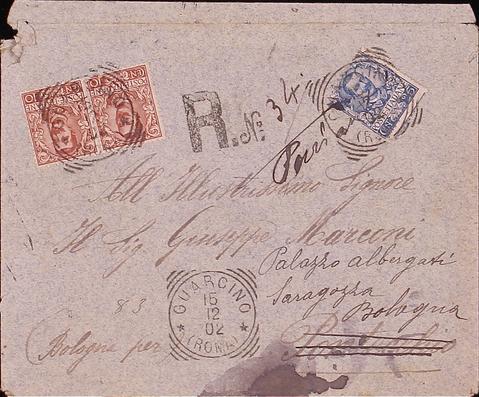 R. No 34
All Illustrissimo Signore
Il Sig Giuseppe Marconi
Palazzo albergati
Saragozza
Bologna
83
GUARCINO
15
12
02
(ROMA)
Bologna per